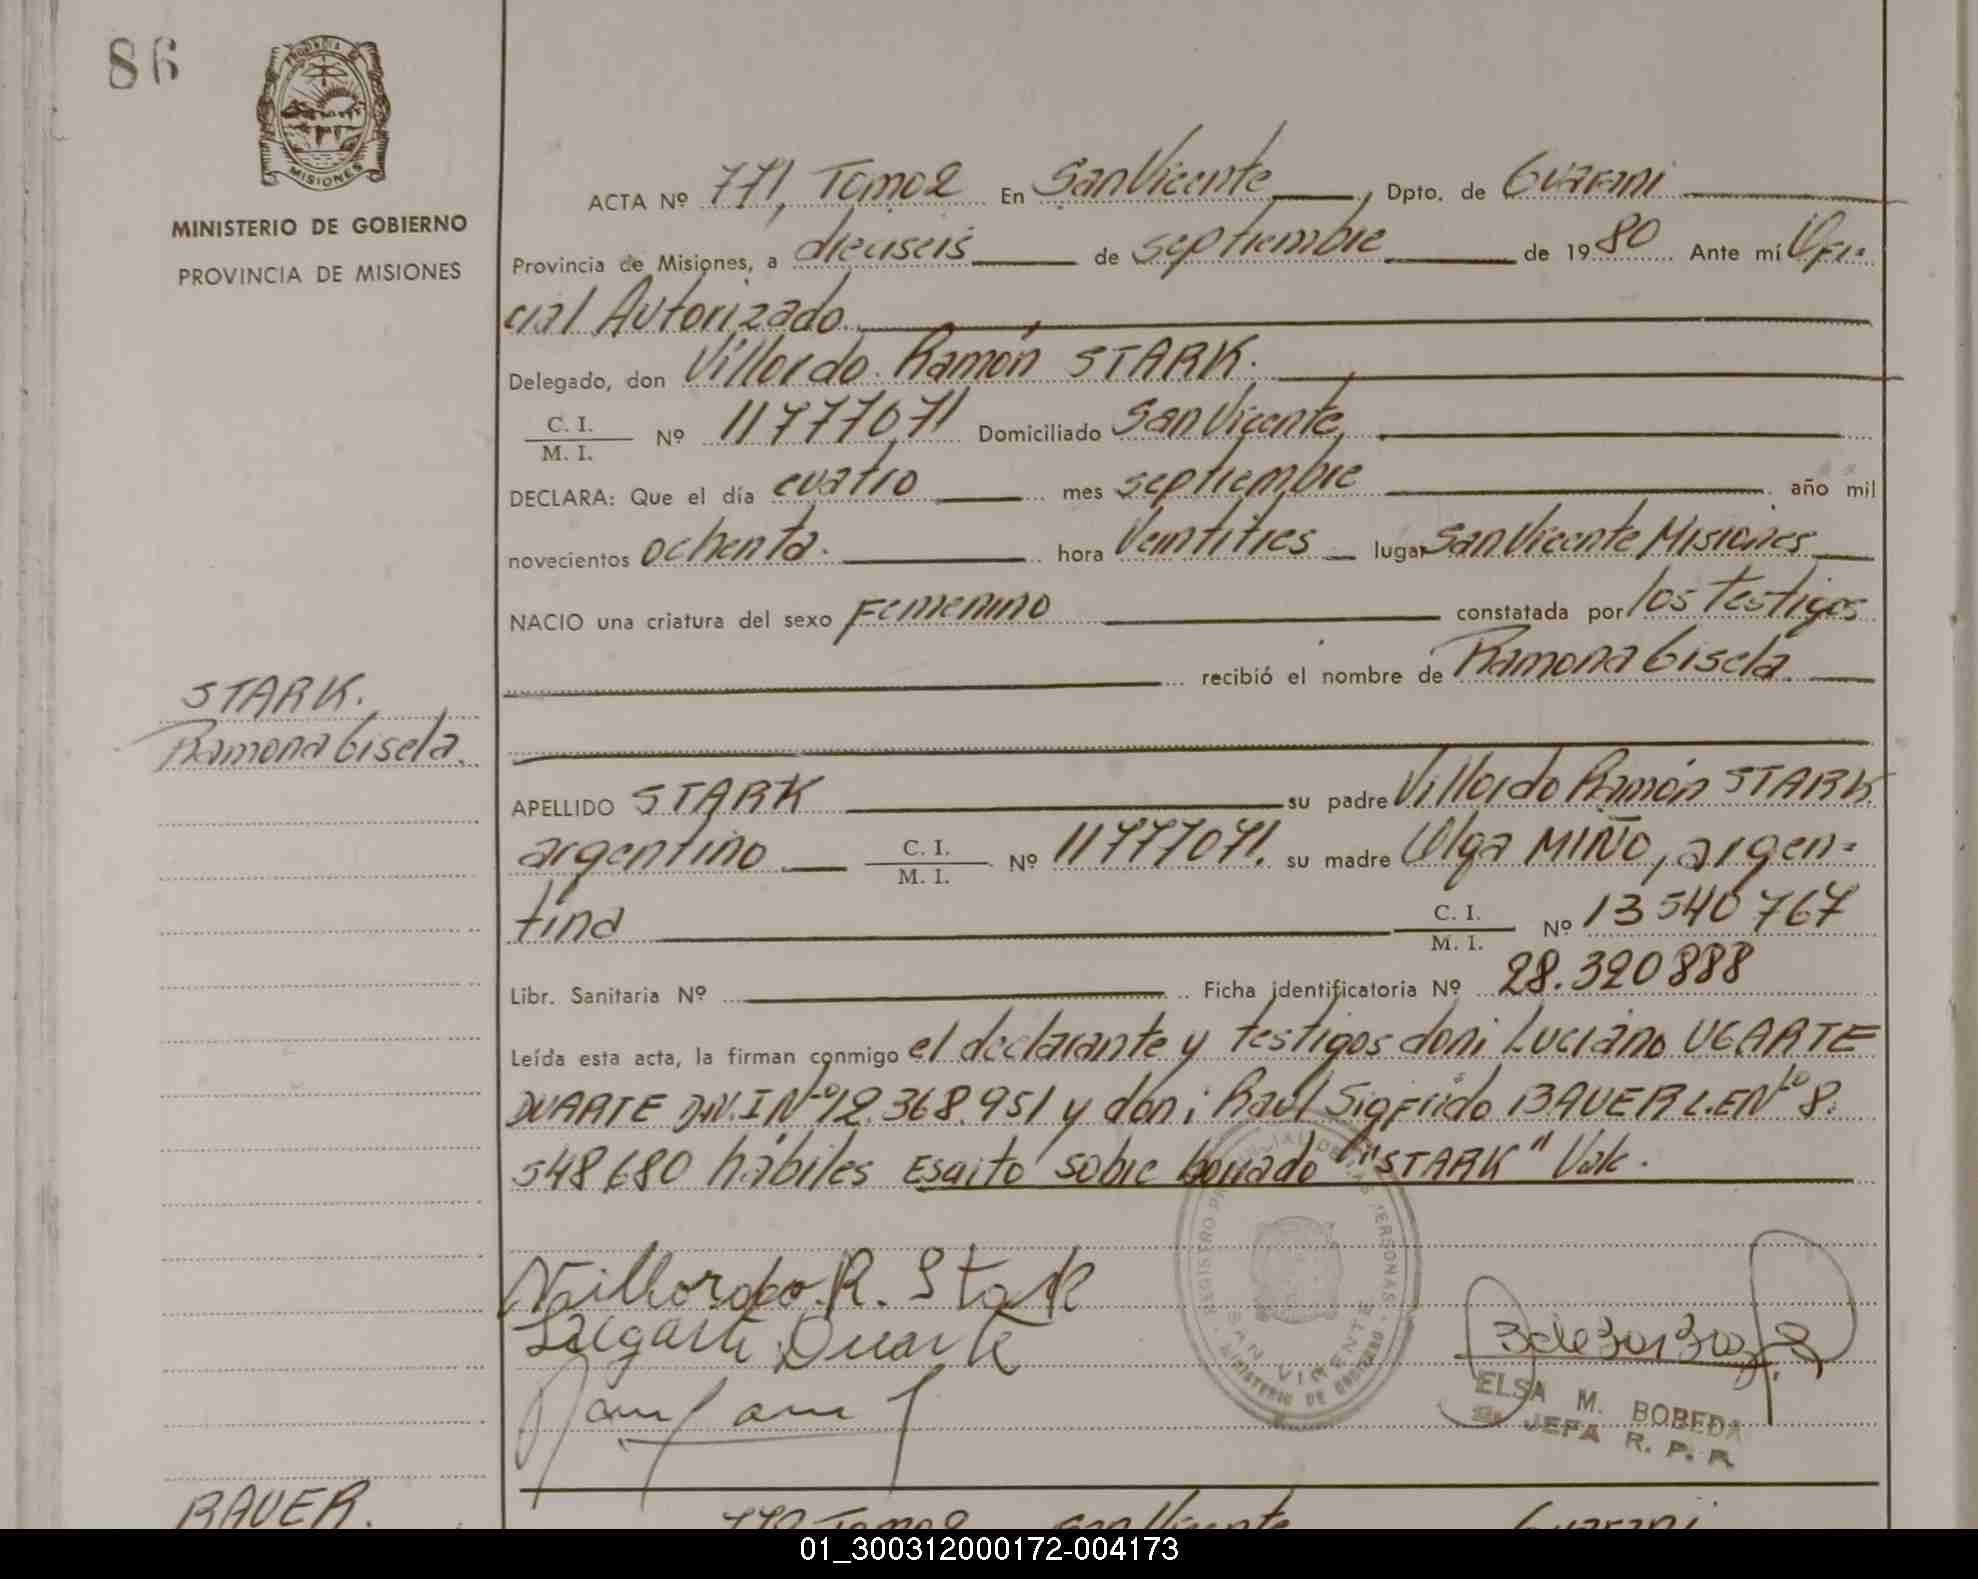 86
PROVINCIA DE
MISIONES
MINISTERIO DE GOBIERNO
PROVINCIA DE MISIONES
ACTA Nº 771, Tomo 2 En San Vicente, Dpto. de Guarani
Provincia de Misiones, a dieciseis de septiembre de 1980 Ante mí Ofi-
cial Autorizado
Delegado, don Villordo Ramón STARK.
C. I. / M. I. Nº 11777071 Domiciliado San Vicente,
DECLARA: Que el día cuatro mes septiembre año mil
novecientos ochenta. hora Veintitres lugar San Vicente Misiones
NACIO una criatura del sexo Femenino constatada por los Testigos
recibió el nombre de Ramona Gisela
STARK.
Ramona Gisela.
APELLIDO STARK su padre Villordo Ramón STARK
argentino C. I. / M. I. Nº 11777071. su madre Olga MIÑO, argen-
tina C. I. / M. I. Nº 13540767
Libr. Sanitaria Nº Ficha identificatoria Nº 28.320888
Leída esta acta, la firman conmigo el declarante y testigos don: Luciano UGARTE
DUARTE D.N.I Nº 12.368.951 y don: Raúl Sigfrido BAUER L.E Nº 8.
548680 hábiles Escrito sobre borrado "STARK" Vale.
Villordo. R. Stark
L Ugarte Duarte
REGISTRO PROVINCIAL DE LAS PERSONAS
SAN VICENTE
MINISTERIO DE GOBIERNO
ELSA M. BOBEDA
JEFA R. P. P.
BAUER.
772 Tomo 2 San Vicente Guarani
01_300312000172-004173